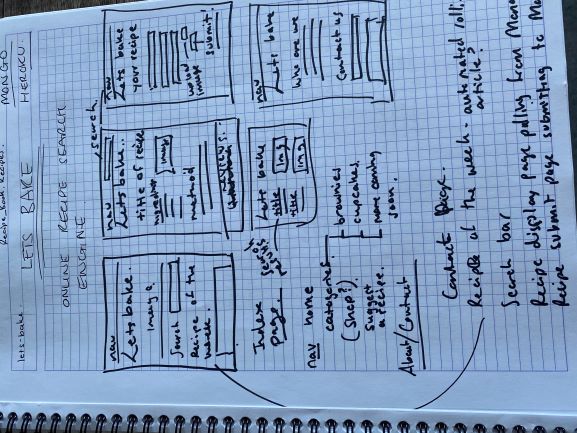 Recipe_Book.Recipes
MONGO
lets-bake.
HEROKU.
LETS BAKE
ONLINE RECIPE SEARCH
ENGINE
search.
nav
Lets bake.
Image.
Search
Recipe of the
week.
nav
Lets bake..
title of recipe
ingredients
image
method
reviews.
nav
Lets bake
your recipe
upload
image
submit!
Index
page.
search
results
Lets bake
title
img
title
img
nav
Lets bake
Who are we
Contact us
nav home
categories
(shop?)
suggest
a recipe.
brownies
cupcakes.
more coming
soon.
About/Contact
Contact page.
Recipe of the week - automated rolli
article?
Search bar
Recipe display page pulling from Mon
Recipe submit page submitting to Mo